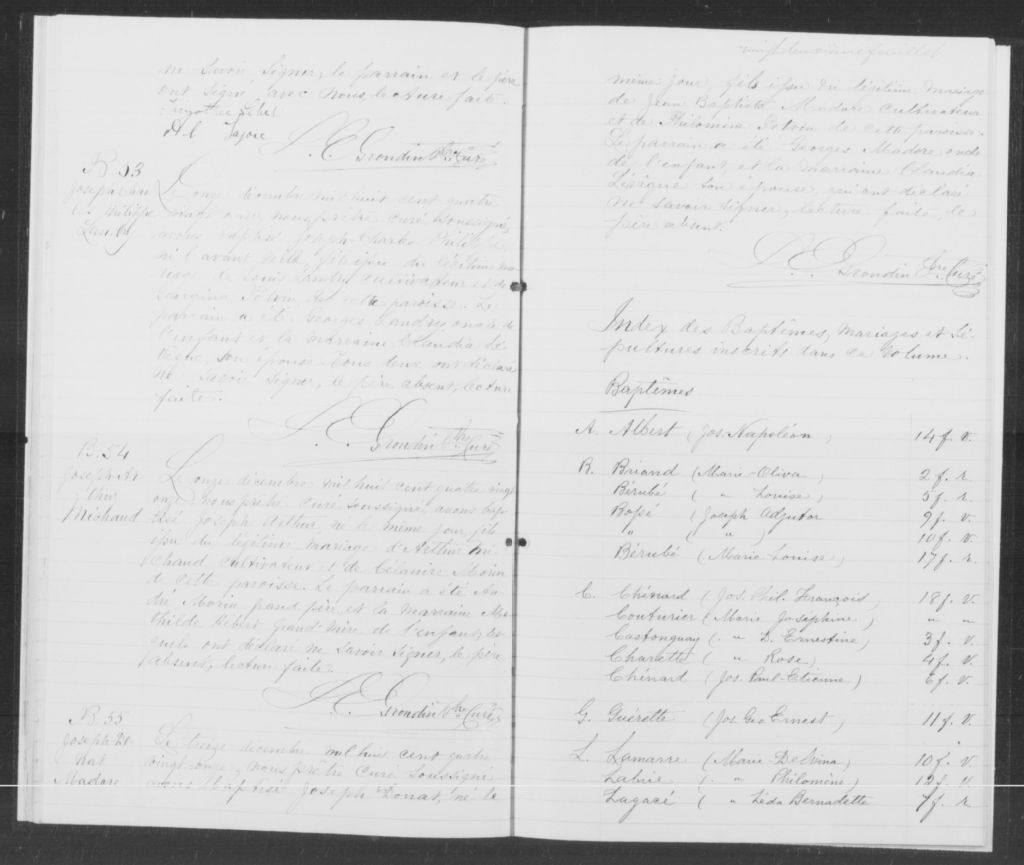 ne savoir signer, le parrain et le père
ont signé avec nous, lecture faite.
Grondin Ptre Curé
B. 53
Joseph Char
les Philippe
Landry
Le onze décembre mil huit cent quatre
vingt onze, nous prêtre curé soussigné,
avons baptisé Joseph Charles Philippe
né l'avant veille, fils issu du légitime ma-
riage de Louis Landry cultivateur et de
Georgina Potvin de cette paroisse. Le
parrain a été Georges Landry, oncle de
l'enfant et la marraine Claudia Lé-
vêque, son épouse. Tous deux ont déclaré
ne savoir signer, le père, absent, lecture
faite.
Grondin Ptre Curé
B. 54
Joseph Ar
thur
Michaud
Le onze décembre mil huit cent quatre vingt
onze nous prêtre curé soussigné, avons bap-
tisé Joseph Arthur né le même jour, fils
issu du légitime mariage d'Arthur Mi-
chaud cultivateur et de Célanire Morin
de cette paroisse. Le parrain a été An-
dré Morin grand père et la marraine Ma-
thilde Hébert grand'mère de l'enfant, les-
quels ont déclaré ne savoir signer, le père
absent, lecture faite.
Grondin Ptre Curé
B. 55
Joseph Do
nat
Madore
Le treize décembre mil huit cent quatre
vingt onze, nous prêtre curé soussigné
avons baptisé Joseph Donat, né le
vingt deuxième feuillet
même jour, fils issu du légitime mariage
de Jean Baptiste Madore cultivateur
et de Philomène Potvin de cette paroisse.
Le parrain a été Georges Madore oncle
de l'enfant, et la marraine Claudia
Lévêque son épouse, qui ont déclaré
ne savoir signer, lecture faite, le
père absent.
Grondin Ptre Curé
Index des Baptêmes, mariages et Sé-
pultures inscrits dans ce Volume.
Baptêmes
A. Albert (Jos. Napoléon) 14 f. v.
B. Briand (Marie-Oliva) 2 f. r.
Bérubé ( " Louise) 5 f. r.
Bossé (Joseph Adjutor 9 f. v.
" ( " " ) 10 f. v.
Bérubé (Marie-Louise) 17 f. r.
C. Chénard (Jos. Phil. François) 18 f. v.
Couturier (Marie Joséphine) " "
Castonguay ( " D. Ernestine) 3 f. v.
Charette ( " Rose) 4 f. v.
Chénard (Jos. Paul-Etienne) 6 f. v.
G. Guérette (Jos. Geo Ernest) 11 f. v.
L. Lamarre (Marie Delvina) 10 f. v.
Labrie ( " Philomène) 12 f. v.
Lagacé ( " Léda Bernadette 7 f. r.